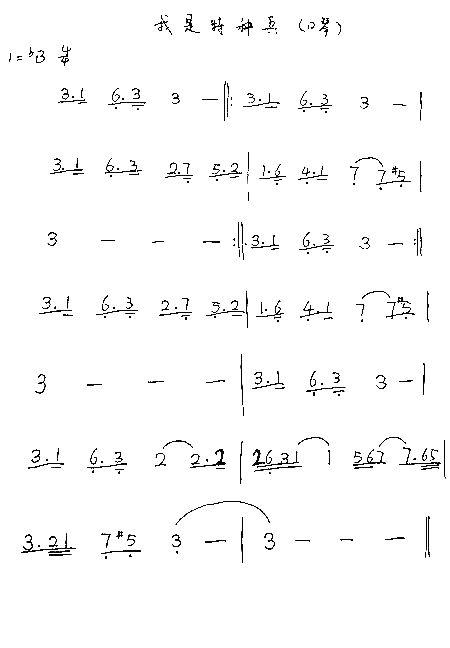 我是特种兵 (口琴)
1=♭B 4/4
3.1 6.3 3 — ‖: 3.1 6.3 3 — |
3.1 6.3 2.7 5.2 | 1.6 4.1 7 7#5 |
3 — — — :‖ 3.1 6.3 3 — :‖
3.1 6.3 2.7 5.2 | 1.6 4.1 7 7#5 |
3 — — — | 3.1 6.3 3 — |
3.1 6.3 2 2.2 | 2631 1 567 7.65 |
3.21 7#5 3 — | 3 — — — ‖